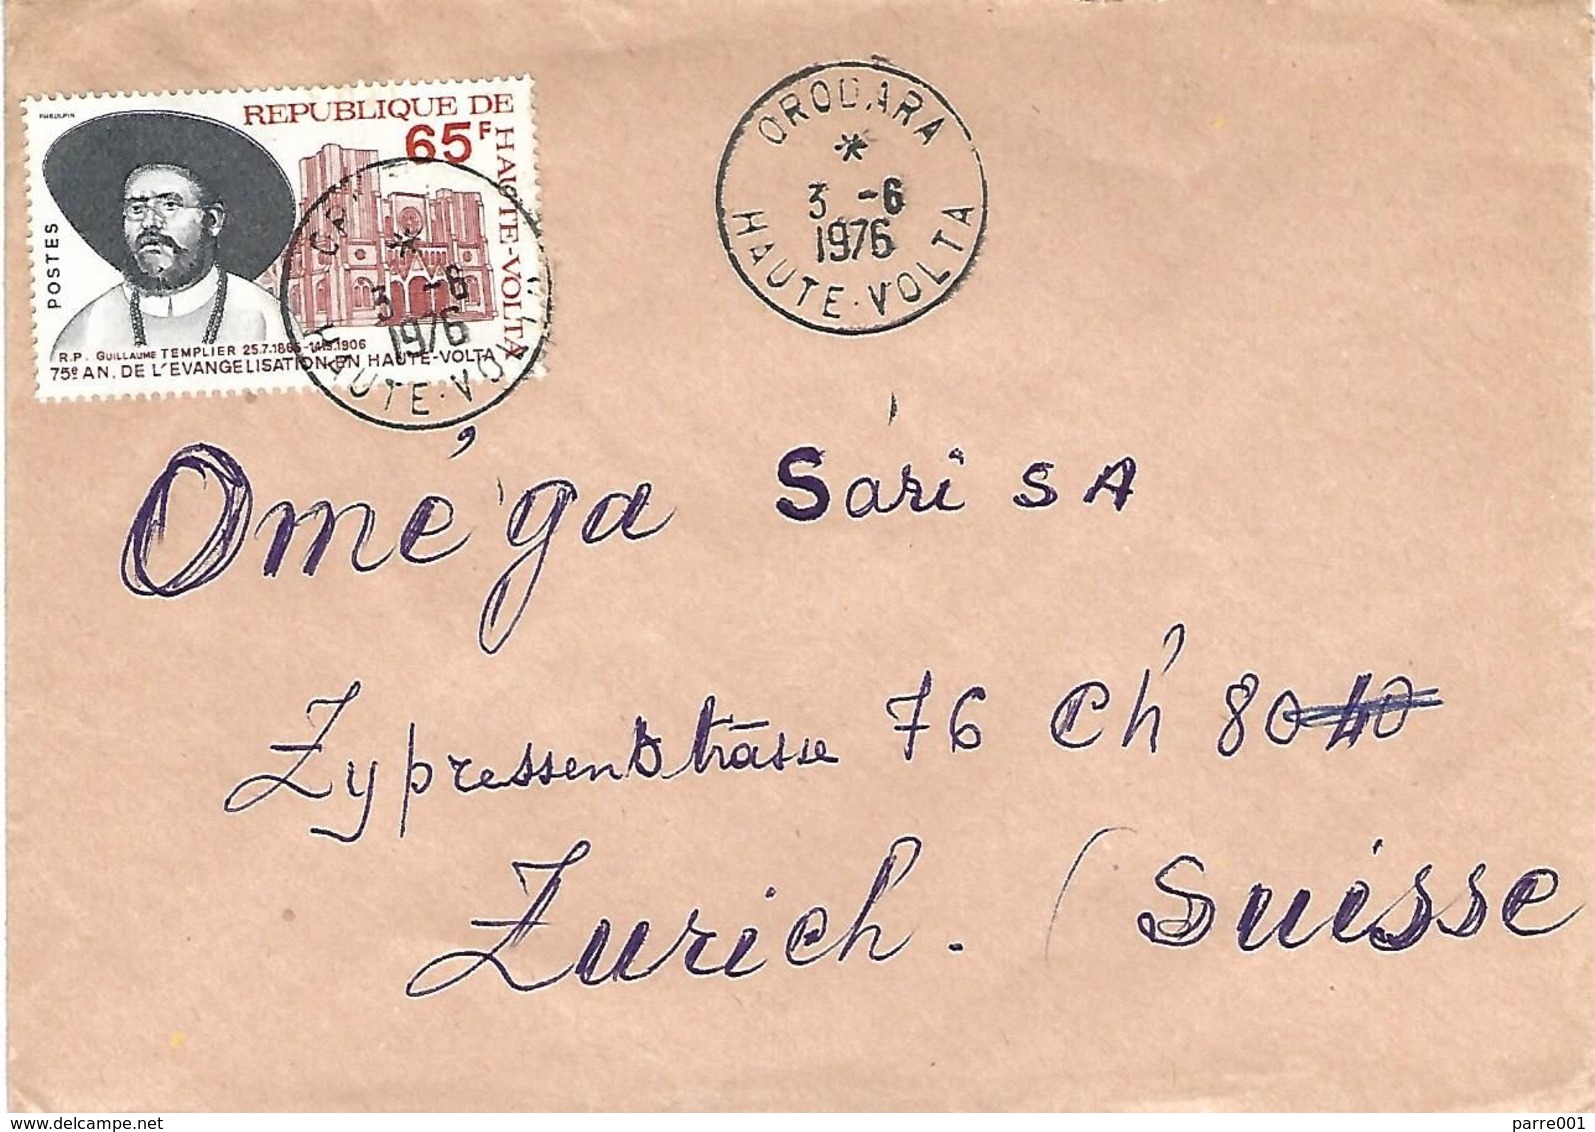 PHEULPIN
REPUBLIQUE DE
HAUTE-VOLTA
65F
POSTES
R.P. GUILLAUME TEMPLIER 25.7.1865-14.9.1906
75e AN. DE L'EVANGELISATION EN HAUTE-VOLTA
*
3 -6
1976
HAUTE·VOLTA
ORODARA
*
3 -6
1976
HAUTE·VOLTA
Oméga Sari SA
Zypressenstrasse 76 Ch 8040
Zurich. (Suisse
delcampe.net
parre001